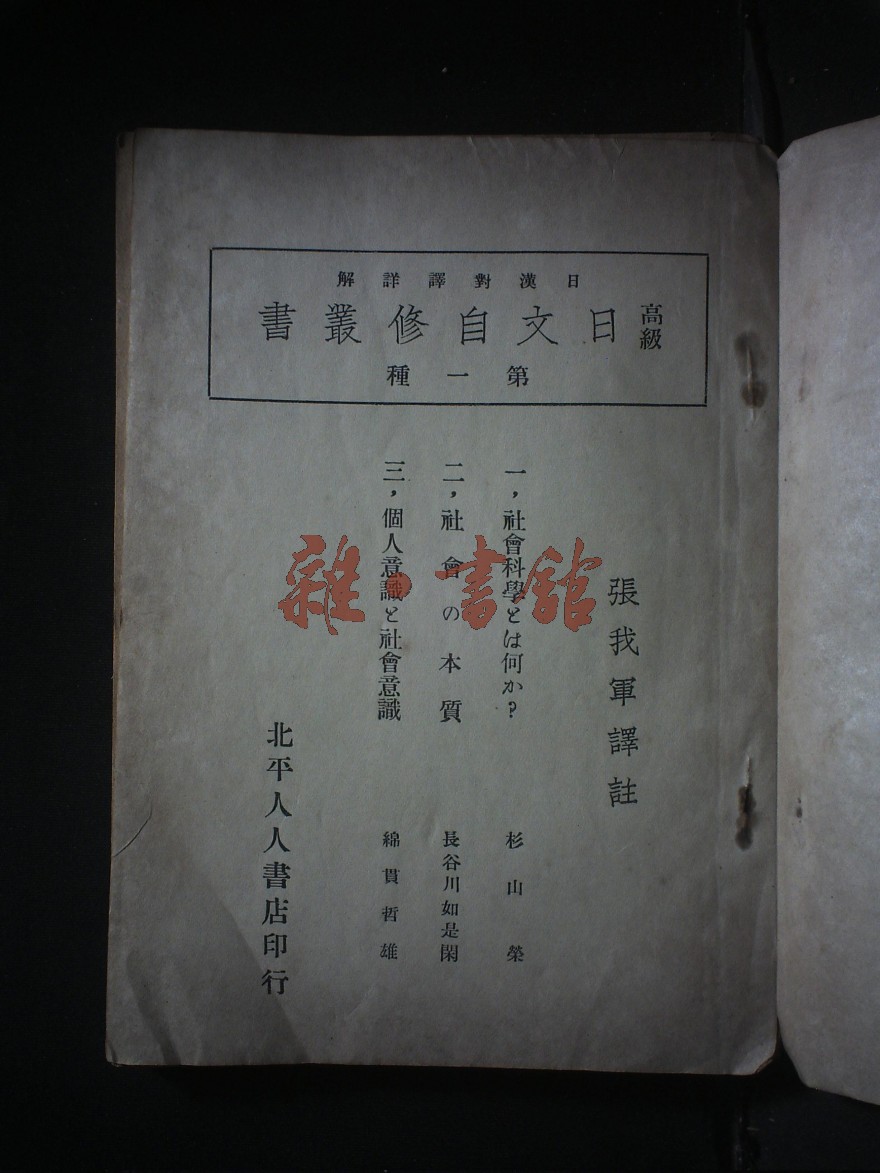 日漢對譯詳解
高級
日文自修叢書
第一種
張我軍譯註
一，社會科學とは何か？ 杉山榮
二，社會の本質 長谷川如是閑
三，個人意識と社會意識 綿貫哲雄
北平人人書店印行
雜·書館